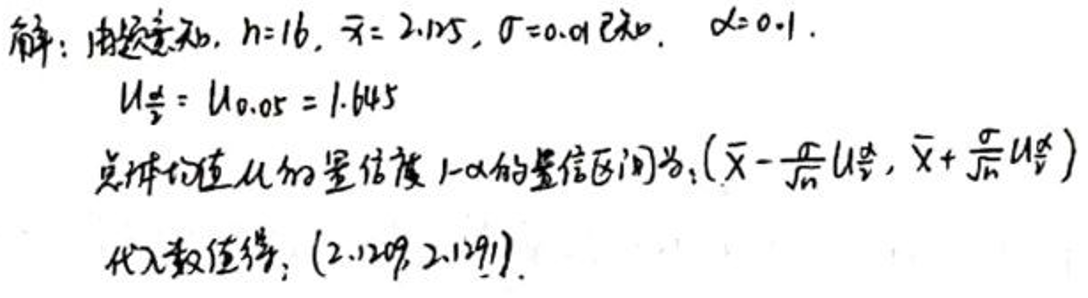 解：由题意知, n=16, x̄=2.125, σ=0.01已知. α=0.1.
U_{α/2} = U_{0.05} = 1.645
总体均值μ的置信度1-α的置信区间为:(x̄ - σ/√n U_{α/2}, x̄ + σ/√n U_{α/2})
代入数值得: (2.1209, 2.1291).